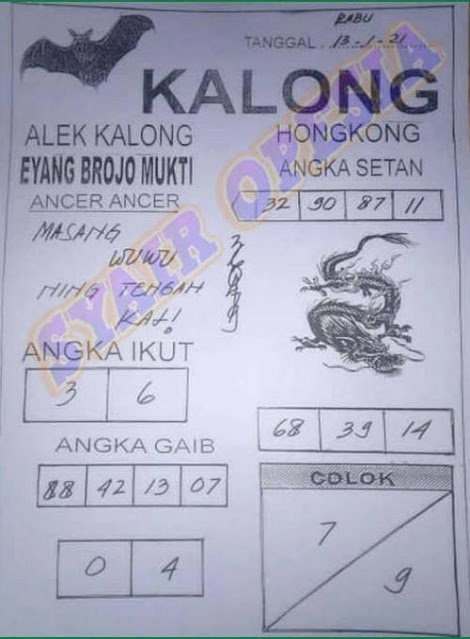 RABU
TANGGAL . 13-1-21
KALONG
ALEK KALONG
HONGKONG
EYANG BROJO MUKTI
ANGKA SETAN
ANCER ANCER
32 90 87 11
MASANG
WUWU
NING TENGAH
KALI
ANGKA IKUT
3 6
68 39 14
ANGKA GAIB
88 42 13 07
COLOK
7
9
0 4
SYAIR OPESIA